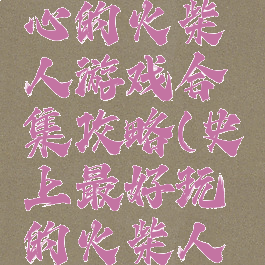 心的火柴
人游戏合
集攻略(史
上最好玩
的火柴人